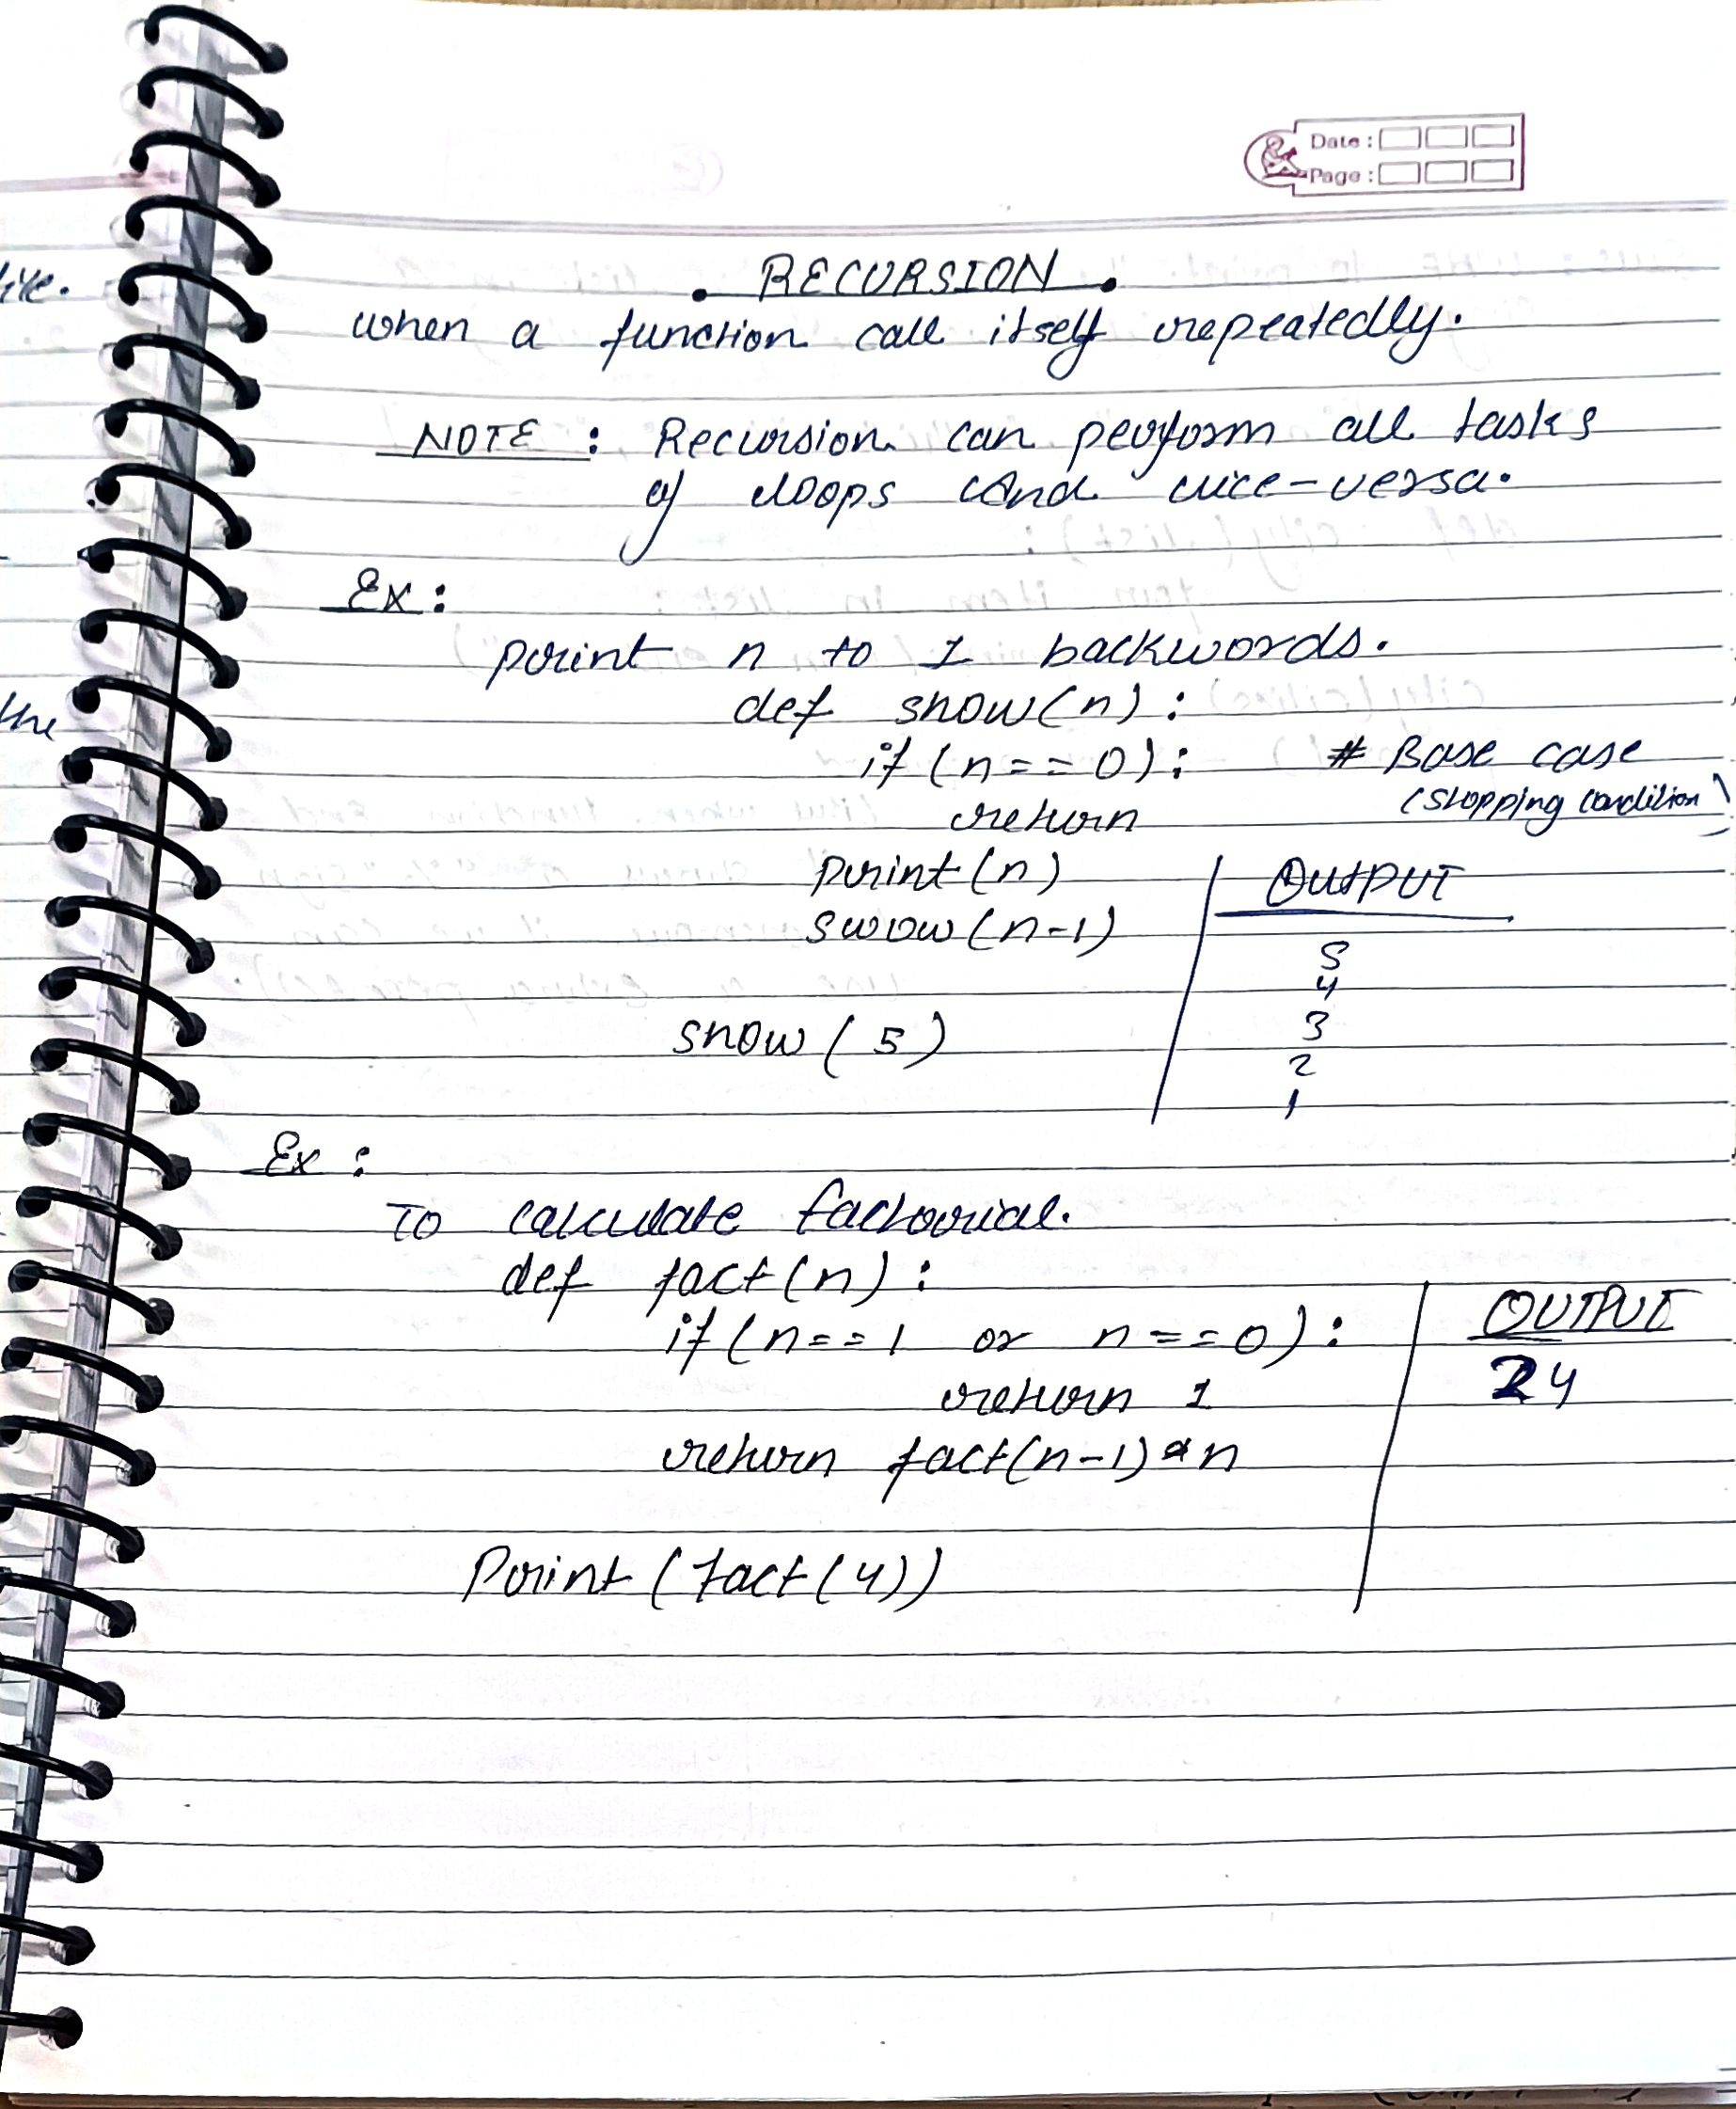 Date :
Page :
. RECURSION .
when a function call itself repeatedly.
NOTE : Recursion can perform all tasks
of loops and vice-versa.
Ex :
print n to 1 backwords.
def show(n) :
if (n==0) : # Base case
return (stopping condition)
print (n)
swow (n-1)
show (5)
OUTPUT
5
4
3
2
1
Ex :
To calculate factorial.
def fact(n) :
if (n==1 or n==0) :
return 1
return fact(n-1)*n
Print (fact(4))
OUTPUT
24
ive.
the